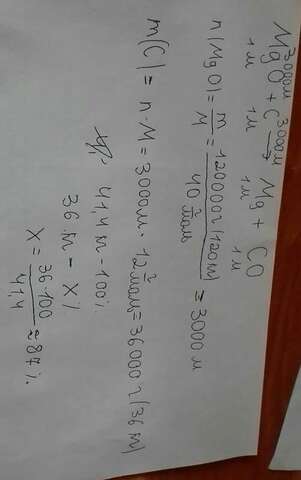 3000м 3000м
MgO + C → Mg + CO
1м 1м 1м 1м
n(MgO) = m/M = 120000г(120м)/40 г/моль = 3000м
m(C) = n·M = 3000м · 12 г/моль = 36000г(36м)
41,4м - 100%
36м - X%
X = 36·100/41,4 ≈ 87%